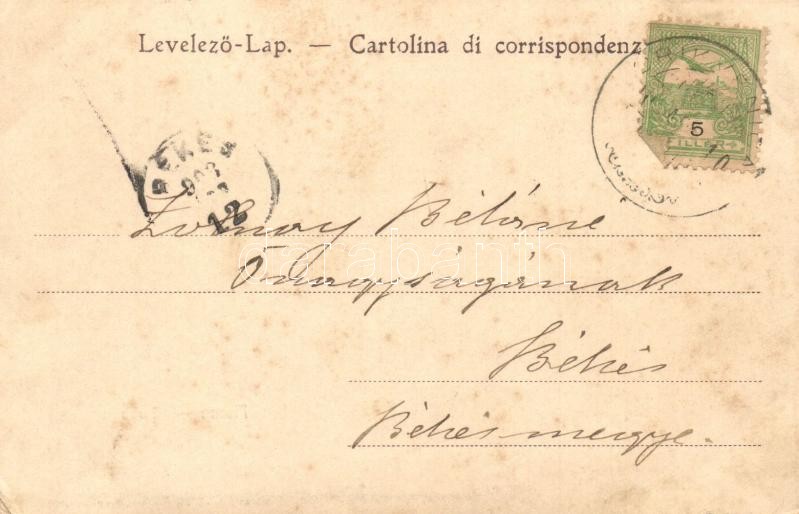 Levelező-Lap. — Cartolina di corrispondenz
5
FILLER
BÉKÉS
903
12
Zolnay Béláné
Önagyságának
Békés
Békésmegye.
darabanth